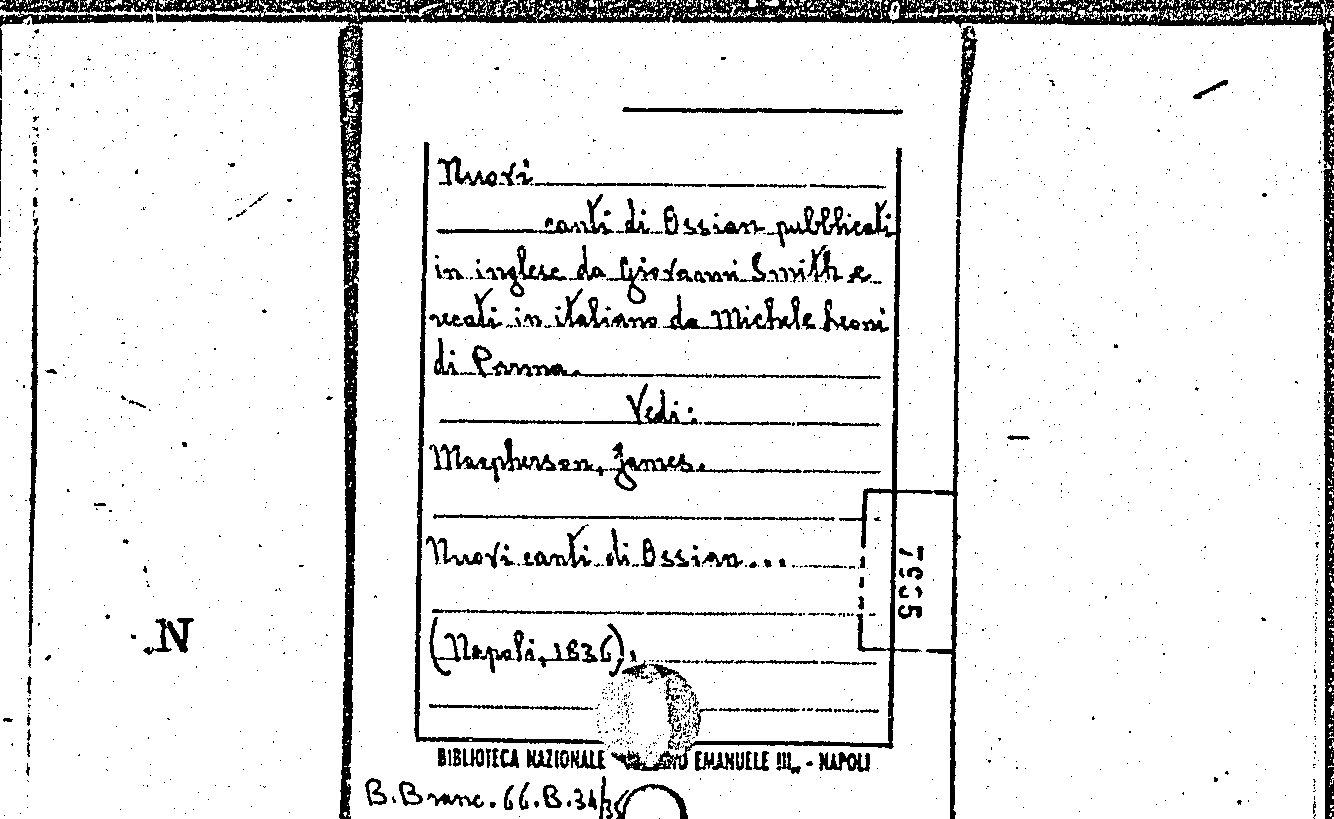 Nuovi
canti di Ossian pubblicati
in inglese da Giovanni Smith e
recati in italiano da Michele Leoni
di Parma.
Vedi:
Macpherson, James.
Nuovi canti di Ossian...
(Napoli, 1836).
N
BIBLIOTECA NAZIONALE EMANUELE III„ - NAPOLI
B. Branc. 66.B.34/